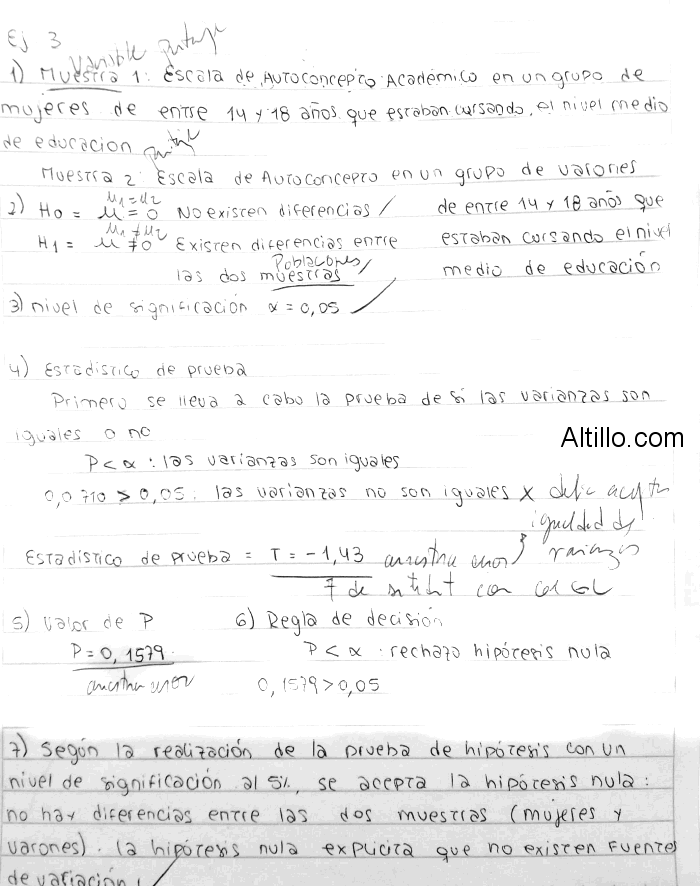 Ej 3
Variable puntaje
1) Muestra 1: Escala de Autoconcepto Académico en un grupo de
mujeres de entre 14 y 18 años que estaban cursando el nivel medio
de educacion
puntaje
Muestra 2: Escala de Autoconcepto en un grupo de varones
de entre 14 y 18 años que
estaban cursando el nivel
medio de educación
μ1 = μ2
2) H0 = μ = 0 No existen diferencias /
μ1 ≠ μ2
H1 = μ ≠ 0 Existen diferencias entre
Poblaciones /
las dos muestras
3) nivel de significación α = 0,05
4) Estadístico de prueba
Primero se lleva a cabo la prueba de si las varianzas son
iguales o no
Altillo.com
P < α : las varianzas son iguales
0,0710 > 0,05: las varianzas no son iguales x debe aceptar
igualdad de
varianzas
Estadístico de prueba = T = -1,43 arrastra error
7 de
5) Valor de P
P = 0,1579
arrastra error
6) Regla de decisión
P < α : rechazo hipótesis nula
0,1579 > 0,05
7) Según la realización de la prueba de hipótesis con un
nivel de significación al 5%, se acepta la hipótesis nula:
no hay diferencias entre las dos muestras (mujeres y
varones). La hipótesis nula explicita que no existen fuentes
de variación.